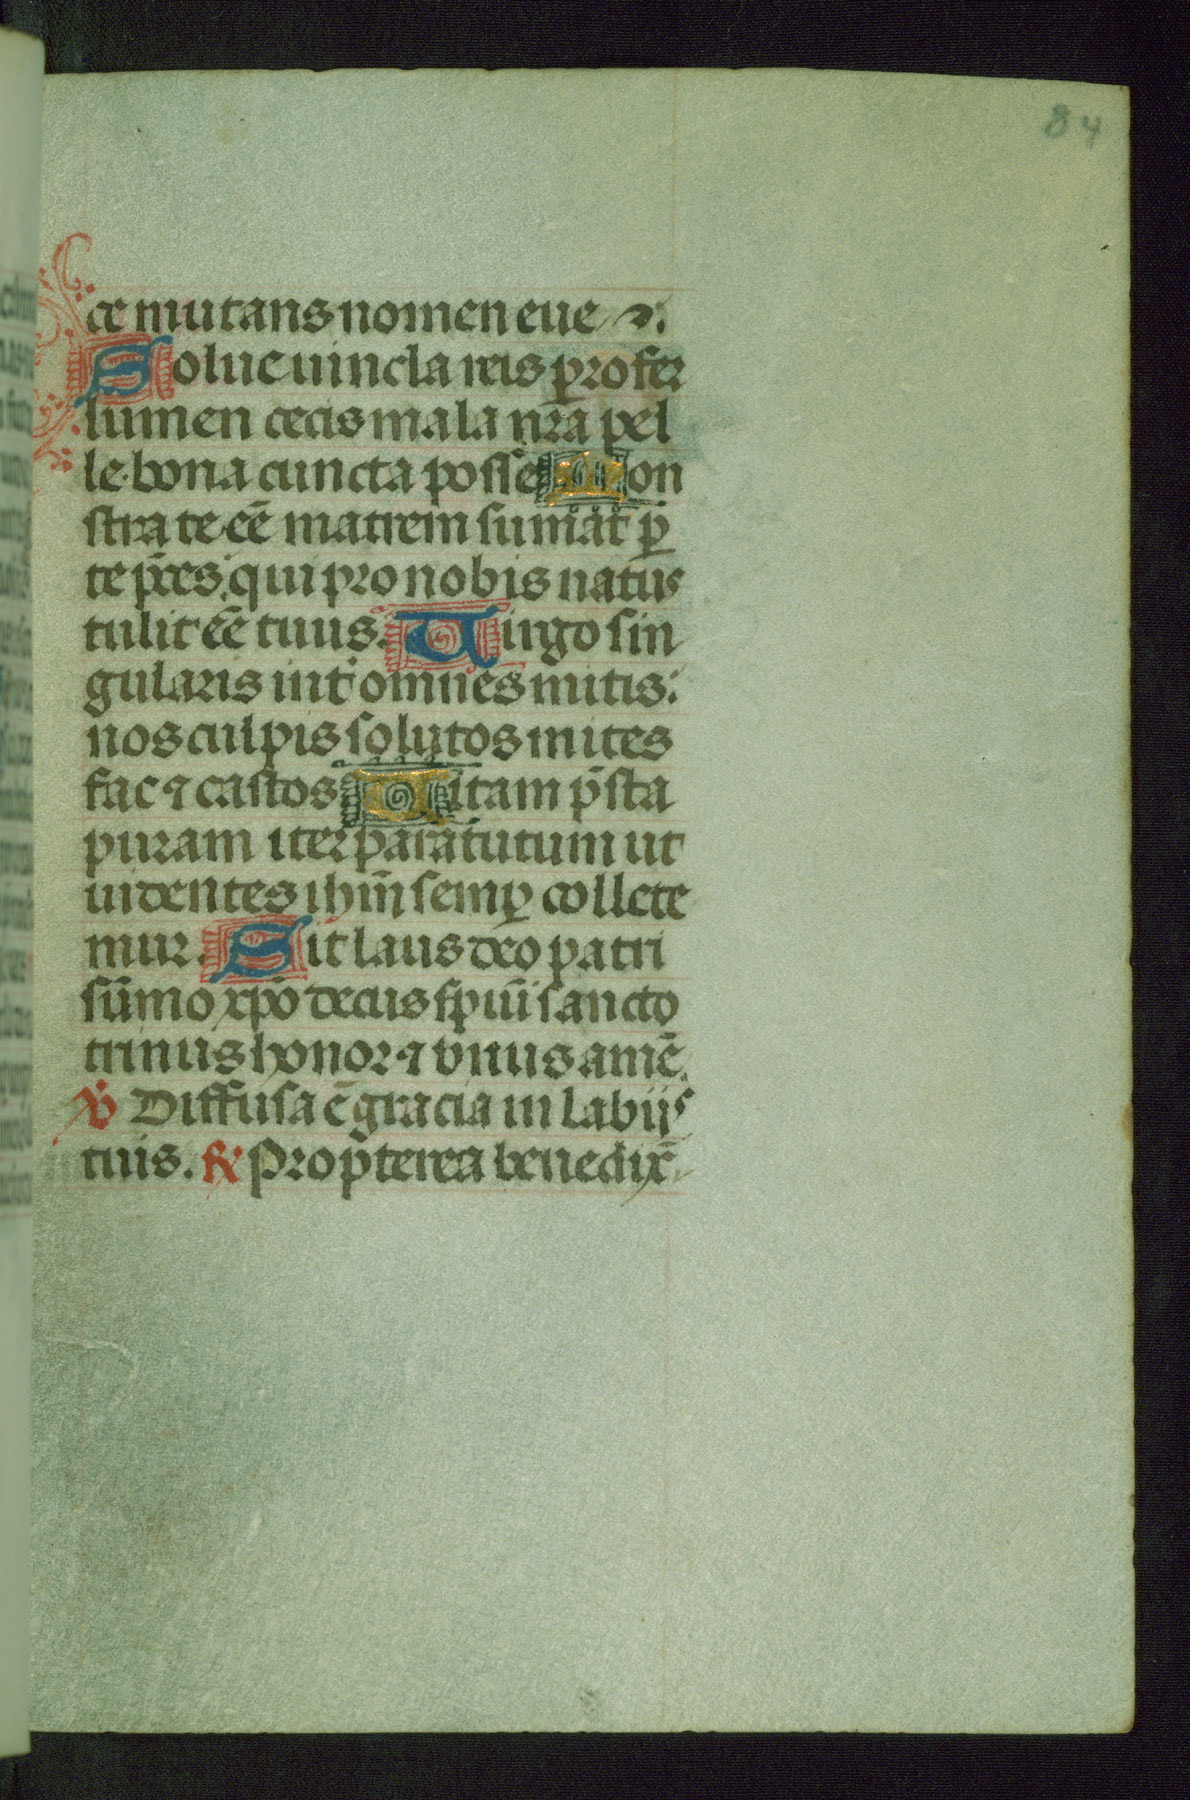 84
ce mutans nomen eue
Solue uincla reis profer
lumen cecis mala nr̄a pel
le bona cuncta posce Mon
stra te eē̄ matrem sumat ꝑ
te p̄ces qui pro nobis natus
tulit eē̄ tuus. Uirgo sin
gularis int̄ omnes mitis:
nos culpis solutos mites
fac ⁊ castos Uitam p̄sta
puram iter para tutum ut
uidentes ihm̄ semꝑ collete
mur. Sit laus deo patri
sūmo xp̄o decus sp̄iui sancto
trinus honor ⁊ vnus amē.
℣ Diffusa ē gracia in labiis
tuis. ℟ Propterea benedix̄